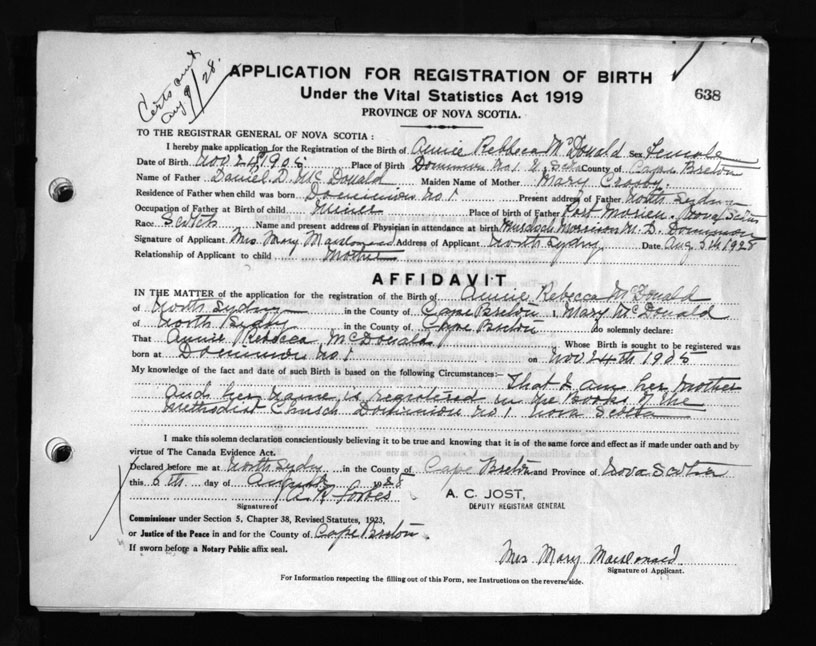 Certs ant
Aug 9/28.
APPLICATION FOR REGISTRATION OF BIRTH
Under the Vital Statistics Act 1919
638
PROVINCE OF NOVA SCOTIA.
TO THE REGISTRAR GENERAL OF NOVA SCOTIA:
I hereby make application for the Registration of the Birth of Annie Rebbeca McDonald Sex Female
Date of Birth Nov 24, 1905 Place of Birth Dominion No 1 County of Cape Breton
Name of Father Daniel D. McDonald Maiden Name of Mother Mary
Residence of Father when child was born Dominion No 1 Present address of Father North Sydney
Occupation of Father at Birth of child Miner Place of birth of Father Port Morien, Nova Scotia
Race Scotch Name and present address of Physician in attendance at birth Murdoch Morrison M.D. Dominion
Signature of Applicant Mrs. Mary MacDonald Address of Applicant North Sydney Date Aug 5th 1928
Relationship of Applicant to child Mother
AFFIDAVIT
IN THE MATTER of the application for the registration of the Birth of Annie Rebecca McDonald
of North Sydney in the County of Cape Breton, Mary McDonald
of North Sydney in the County of Cape Breton do solemnly declare:
That Annie Rebecca McDonald Whose Birth is sought to be registered was
born at Dominion No 1 on Nov 24th 1905
My knowledge of the fact and date of such Birth is based on the following Circumstances:— That I am her Mother
and her name is registered in the Books of the
Methodist Church Dominion No 1 Nova Scotia
I make this solemn declaration conscientiously believing it to be true and knowing that it is of the same force and effect as if made under oath and by
virtue of The Canada Evidence Act.
Declared before me at North Sydney in the County of Cape Breton and Province of Nova Scotia
this 5th day of August 1928
A. R. Forbes
A. C. JOST,
Signature of
DEPUTY REGISTRAR GENERAL
Commissioner under Section 5, Chapter 38, Revised Statutes, 1923,
or Justice of the Peace in and for the County of Cape Breton.
If sworn before a Notary Public affix seal.
Mrs Mary MacDonald
Signature of Applicant.
For Information respecting the filling out of this Form, see Instructions on the reverse side.